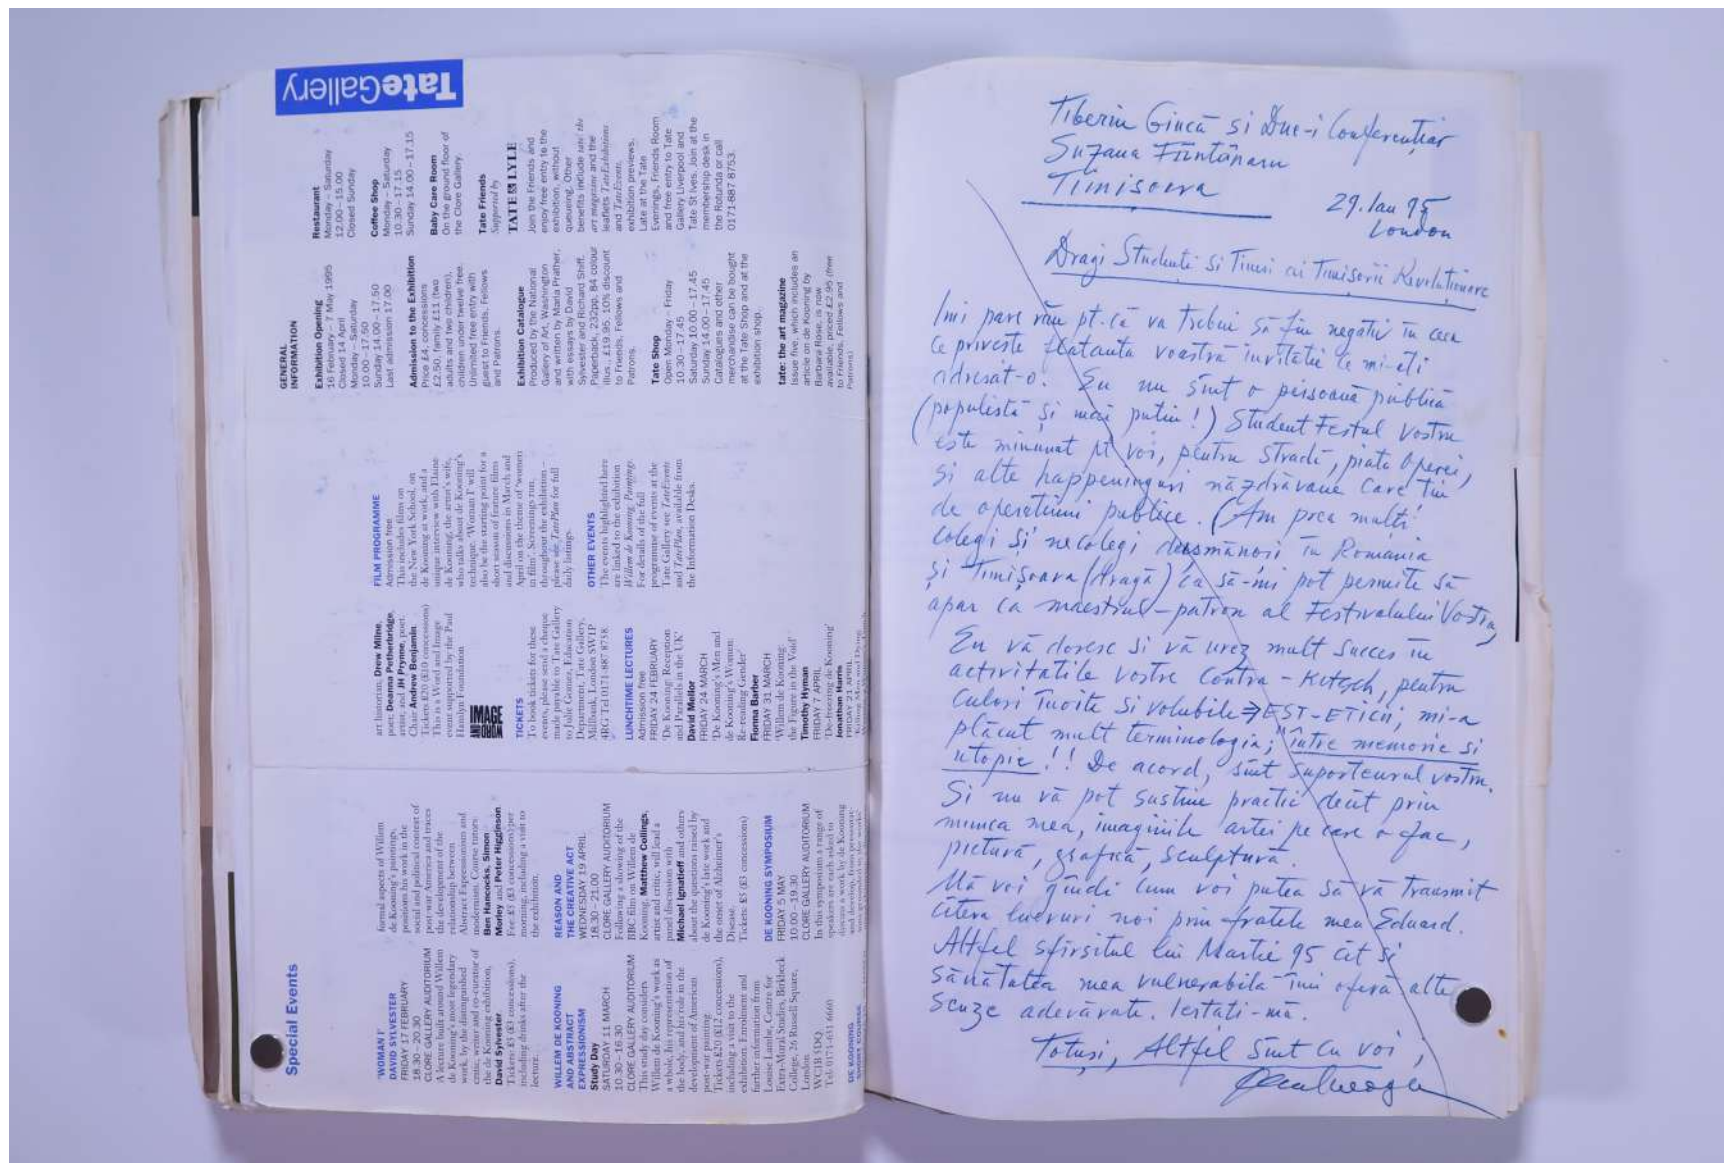 TateGallery
Special Events
'WOMAN I'
DAVID SYLVESTER
FRIDAY 17 FEBRUARY
18.30–20.30
CLORE GALLERY AUDITORIUM
A lecture built around Willem
de Kooning's most legendary
work, by the distinguished
critic, writer and co-curator of
the de Kooning exhibition,
David Sylvester.
Tickets: £5 (£3 concessions),
including drinks after the
lecture.
WILLEM DE KOONING
AND ABSTRACT
EXPRESSIONISM
Study Day
SATURDAY 11 MARCH
10.30–16.30
CLORE GALLERY AUDITORIUM
This study day considers
Willem de Kooning's work as
a whole, his representation of
the body, and his role in the
development of American
post-war painting.
Tickets £20 (£12 concessions),
including a visit to the
exhibition. Enrolment and
further information from:
Louise Lambe, Centre for
Extra-Mural Studies, Birkbeck
College, 26 Russell Square,
London
WC1B 5DQ.
Tel: 0171-631 6660
DE KOONING
formal aspects of Willem
de Kooning's paintings,
positions his work in the
social and political context of
post-war America and traces
the development of the
relationship between
Abstract Expressionism and
modernism. Course tutors:
Ben Hancocks, Simon
Morley and Peter Higginson
Fee: £5 (£3 concessions) per
morning, including a visit to
the exhibition.
REASON AND
THE CREATIVE ACT
WEDNESDAY 19 APRIL
18.30–21.00
CLORE GALLERY AUDITORIUM
Following a showing of the
BBC film on Willem de
Kooning, Matthew Collings,
artist and critic, will lead a
panel discussion with
Michael Ignatieff and others
about the questions raised by
de Kooning's late work and
the onset of Alzheimer's
Disease.
Tickets: £5 (£3 concessions)
DE KOONING SYMPOSIUM
FRIDAY 5 MAY
10.00–19.30
CLORE GALLERY AUDITORIUM
In this symposium a range of
speakers are each asked to
discuss a work by de Kooning
art historian, Drew Milne,
poet, Deanna Petherbridge,
artist, and JH Prynne, poet.
Chair Andrew Benjamin
Tickets £20 (£10 concessions)
This is a Word and Image
event supported by the Paul
Hamlyn Foundation
TICKETS
To book tickets for these
events, please send a cheque
made payable to Tate Gallery
to Julie Gomez, Education
Department, Tate Gallery,
Millbank, London SW1P
4RG Tel 0171-887 8758.
LUNCHTIME LECTURES
Admission free
FRIDAY 24 FEBRUARY
'De Kooning: Reception
and Parallels in the UK'
David Mellor
FRIDAY 24 MARCH
'De Kooning's Men and
de Kooning's Women:
Re-reading Gender'
Fionna Barber
FRIDAY 31 MARCH
'Willem de Kooning:
the Figure in the Void'
Timothy Hyman
FRIDAY 7 APRIL
'De-freezing de Kooning'
Jonathan Harris
FRIDAY 21 APRIL
FILM PROGRAMME
Admission free
This includes films on
the New York School, on
de Kooning at work, and a
unique interview with Elaine
de Kooning, the artist's wife,
who talks about de Kooning's
technique. 'Woman I' will
also be the starting point for a
short season of feature films
and discussions in March and
April on the theme of 'women
in film'. Screenings run
throughout the exhibition –
please see TatePlan for full
daily listings.
OTHER EVENTS
The events highlighted here
are linked to the exhibition
Willem de Kooning: Paintings.
For details of the full
programme of events at the
Tate Gallery see TateEvents
and TatePlan, available from
the Information Desks.
GENERAL
INFORMATION
Exhibition Opening
16 February – 7 May 1995
Closed 14 April
Monday – Saturday
10.00–17.50
Sunday 14.00–17.50
Last admission 17.00
Admission to the Exhibition
Price £4, concessions
£2.50, family £11 (two
adults and two children),
children under twelve free.
Unlimited free entry with
guest to Friends, Fellows
and Patrons.
Exhibition Catalogue
Produced by the National
Gallery of Art, Washington
and written by Marla Prather,
with essays by David
Sylvester and Richard Shiff.
Paperback, 232pp, 84 colour
illus., £19.95. 10% discount
to Friends, Fellows and
Patrons.
Tate Shop
Open Monday – Friday
10.30–17.45
Saturday 10.00–17.45
Sunday 14.00–17.45
Catalogues and other
merchandise can be bought
at the Tate Shop and at the
exhibition shop.
tate: the art magazine
Issue five, which includes an
article on de Kooning by
Barbara Rose, is now
available, priced £2.95 (free
to Friends, Fellows and
Patrons)
Restaurant
Monday – Saturday
12.00–15.00
Closed Sunday
Coffee Shop
Monday – Saturday
10.30–17.15
Sunday 14.00–17.15
Baby Care Room
On the ground floor of
the Clore Gallery.
Tate Friends
Supported by
TATE & LYLE
Join the Friends and
enjoy free entry to the
exhibition, without
queueing. Other
benefits include tate: the
art magazine and the
leaflets TateExhibitions
and TateEvents,
exhibition previews,
Late at the Tate
Evenings, Friends Room
and free entry to Tate
Gallery Liverpool and
Tate St Ives. Join at the
membership desk in
the Rotunda or call
0171-887 8753.
Tiberiu Giucă si Dne-i Conferențiar
Suzana Fîntânaru
Timisoara
29. Ian 95
London
Dragi Studenti si Tineri ai Timisorii Revoluționare
Imi pare rău pt. că va trebui să fiu negativ în ceea
ce priveste flatanta voastră invitatie ce mi-ati
adresat-o. Eu nu sînt o persoană publică
(populistă și mai putin!) StudentFestul vostru
este minunat pt voi, pentru stradă, piata Operei,
si alte happeninguri năzdrăvane care tin
de operatiuni publice. (Am prea multi
colegi și necolegi dusmănosi în România
și Timișoara (dragă) ca să-mi pot permite să
apar ca maestrul-patron al Festivalului Vostru,
Eu vă doresc si vă urez mult succes în
activitatile vostre contra-Kitsch, pentru
culori învite si volubile ⇒ EST-ETICII; mi-a
plăcut mult terminologia; "între memorie si
utopie!! De acord, sînt suporteurul vostru.
Si nu vă pot sustine practic decît prin
munca mea, imaginile artei pe care o fac,
pictură, grafică, sculptură.
Mă voi gîndi cum voi putea să vă transmit
cîteva lucruri noi prin fratele meu Eduard.
Altfel sfîrsitul lui Martie 95 cît si
sănătatea mea vulnerabila îmi oferă alte
scuze adevărate. Iertati-mă.
Totusi, Altfel sînt cu voi,